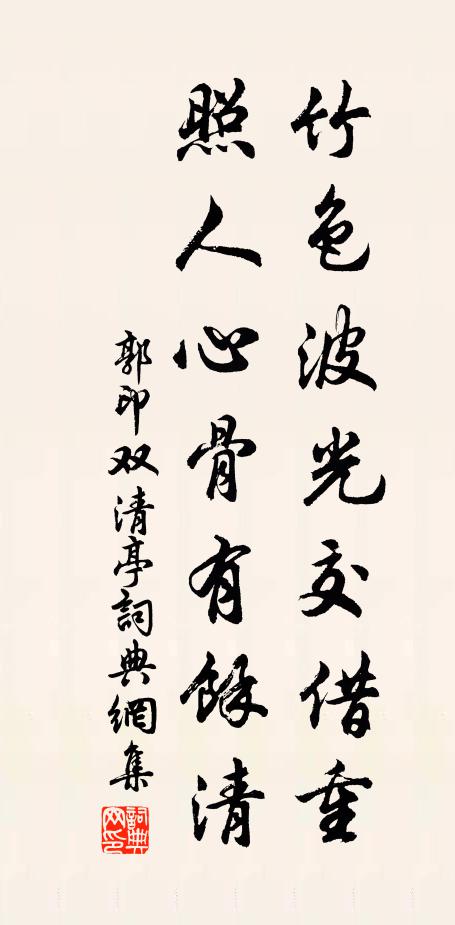 竹色波光交借重
照人心骨有餘清
郭印双清亭詞典網集
詞典網印